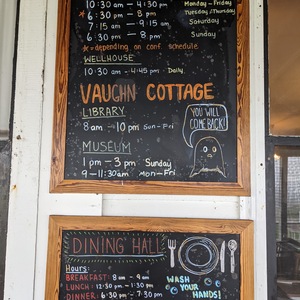 10:30 am - 4:30 pm Monday - Friday
* 6:30 pm - 8 pm Tuesday/Thursday
7:15 am - 9:15 am Saturday
6:30 pm - 8 pm Sunday
* = depending on conf. schedule
WELLHOUSE
10:30 am - 4:45 pm Daily
VAUGHN COTTAGE
LIBRARY
8am - 10 pm Sun - Fri
YOU WILL
COME BACK!
MUSEUM
1 pm - 3 pm Sunday
9 - 11:30am Mon - Fri
DINING HALL
Hours:
BREAKFAST: 8 am - 9 am
LUNCH: 12:30 pm - 1:30 pm
DINNER: 6:30 pm - 7:30 pm
WASH
YOUR
HANDS!